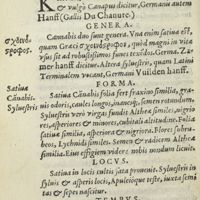 & vulgò Canapus dicitur, Germanis autem
Hanff (Gallis Du Chanure.)
GENERA.
Cannabis duo sunt genera. Vna enim satiua est,
σχοινό-
quam Græci σχοινόστροφον, quòd magni in vita
στροφος.
vsus sit ad robustissimos funes texēdos. Germani
mer hanff dicitur. Altera syluestris, quam Latini
Terminalem vocant, Germani Vuilden hanff.
FORMA.
Satiua
Satiua Cānabis folia fert fraxino similia, gra-
Cānabis.
uis odoris, caules longos, inanes, semen rotundum.
Syluestris
Syluestris verò virgas fundit Althææ similes, nigri
ores, asperas, cubitali altitudine. Folia
satiuæ similia, asperiora & nigriora. Flores subru-
beos, Lychnidi similes. Semen & radicem Altheæ
similia. Eius effigiem videre nobis nondum licuit.
LOCVS.
Satiua in locis cultis sata prouenit. Syluestris in
syluis & asperis locis, Apuleióque teste, iuxta semi
tas & sepes nascitur.
TEMPVS.